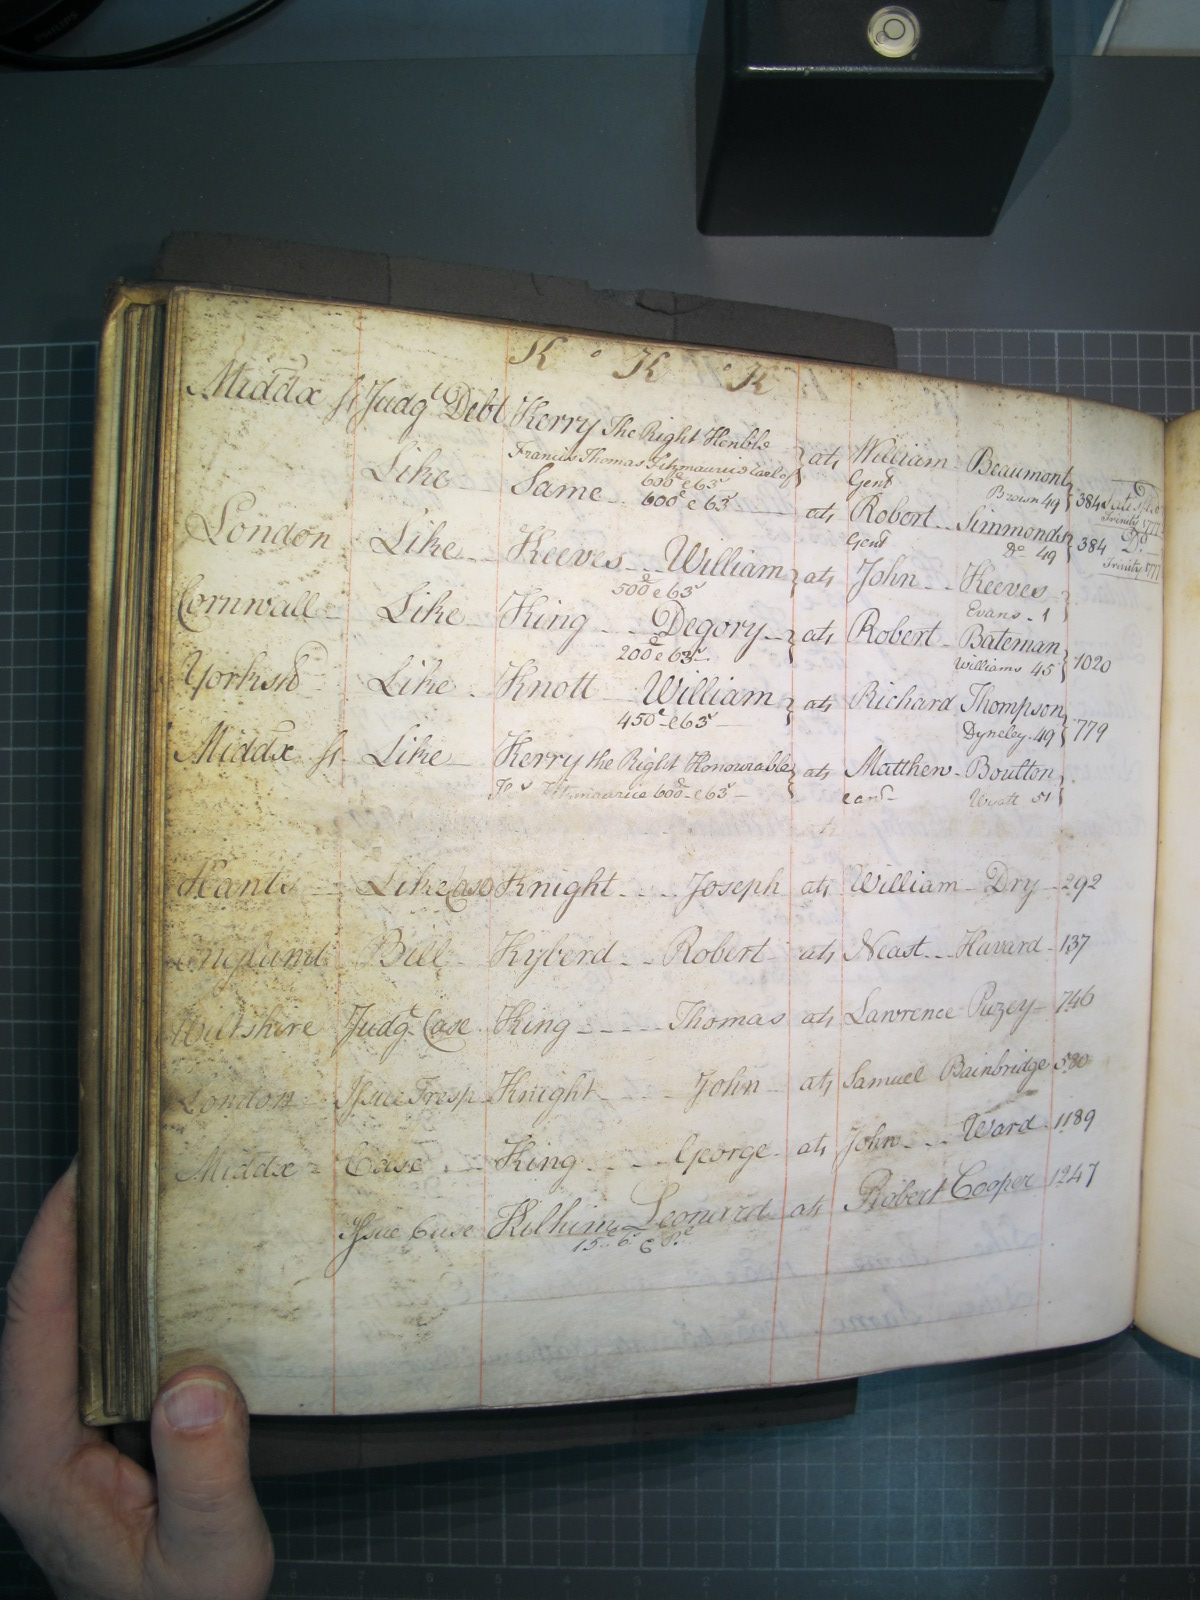 K K K
Middx ss Judgt Debt Kerry The Right Honble at William Beaumont
Francis Thomas Fitzmaurice Earl of Gent
600£ & 63s Brown 49 384
Like Same 600£ & 63s at Robert Simmonds
Gent Do 49 384 Do
Trinity 1777
London Like Keeves William at John Keeves
500£ & 63s Evans 1
Cornwall Like King Degory at Robert Bateman
200£ & 63s Williams 45 1020
Yorksh Like Knott William at Richard Thompson
450£ & 63s Dyneley 49 779
Middx ss Like Kerry the Right Honourable at Matthew Boulton
Fitzmaurice 600£ & 63s and Wyatt 51
Hants Like Case Knight Joseph at William Dry 292
England Bill Kyberd Robert at Neast Havard 137
Wiltshire Judgt Case King Thomas at Lawrence Puzey 746
London Issue Tresp Knight John at Samuel Bainbridge 580
Middx Case King George at John Ward 1189
Issue Case Kilhim Leonard at Robert Cooper 1247